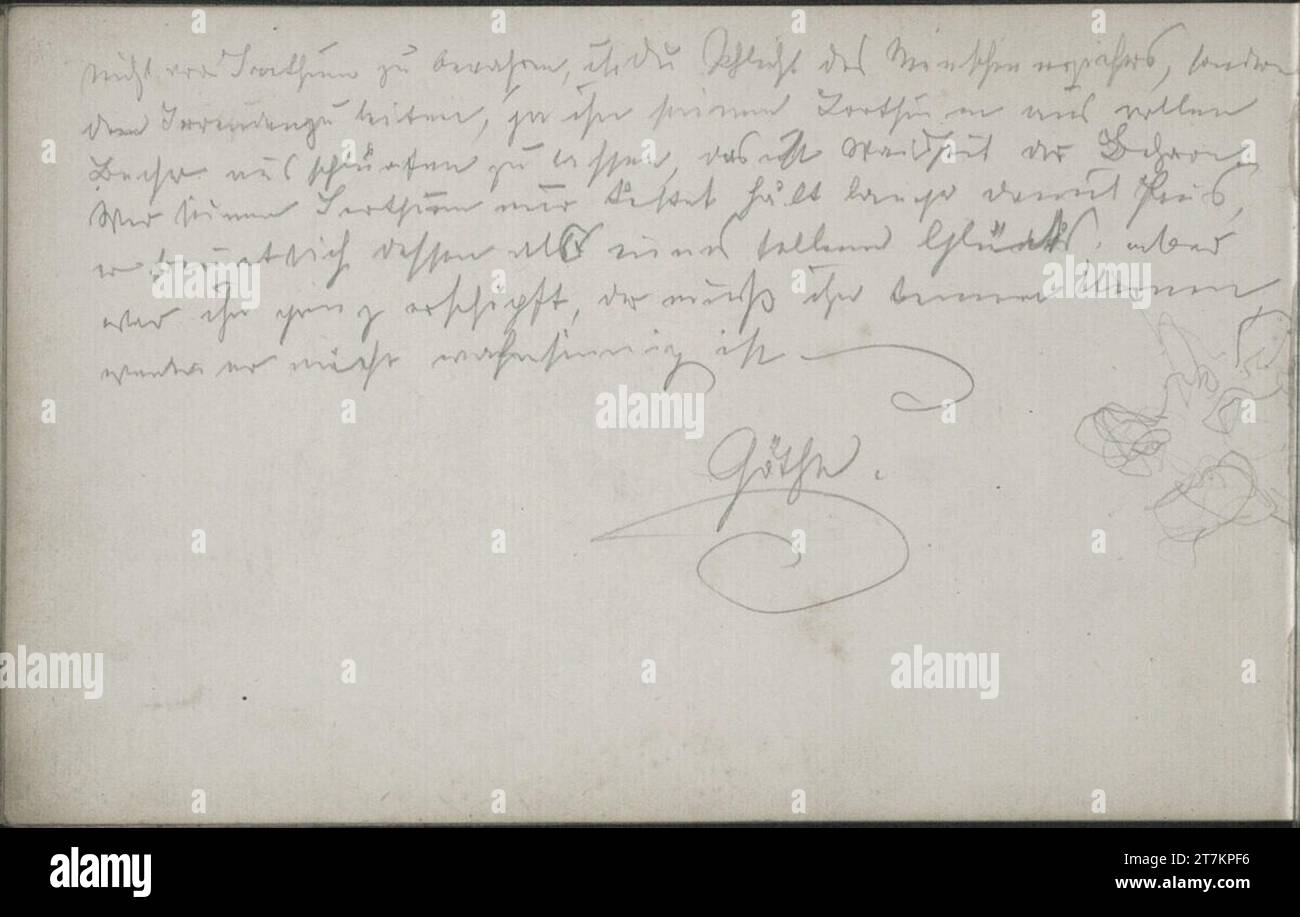 Nicht vor Irrthum zu bewahren, ist die Pflicht des Menschenerziehers, sondern
den Irrenden zu leiten, ja ihn seinen Irrthum aus vollen
Becher ausschlürfen zu lassen, das ist Weisheit der Lehrer.
Wer seinen Irrthum nur kostet hält lange damit Haus,
er freuet sich dessen als eines seltenen Glücks, aber
wer ihn ganz erschöpft, der muß ihn kennen lernen,
wenn er nicht wahnsinnig ist
Göthe.
alamy
Image ID: 2T7KPF6
www.alamy.com